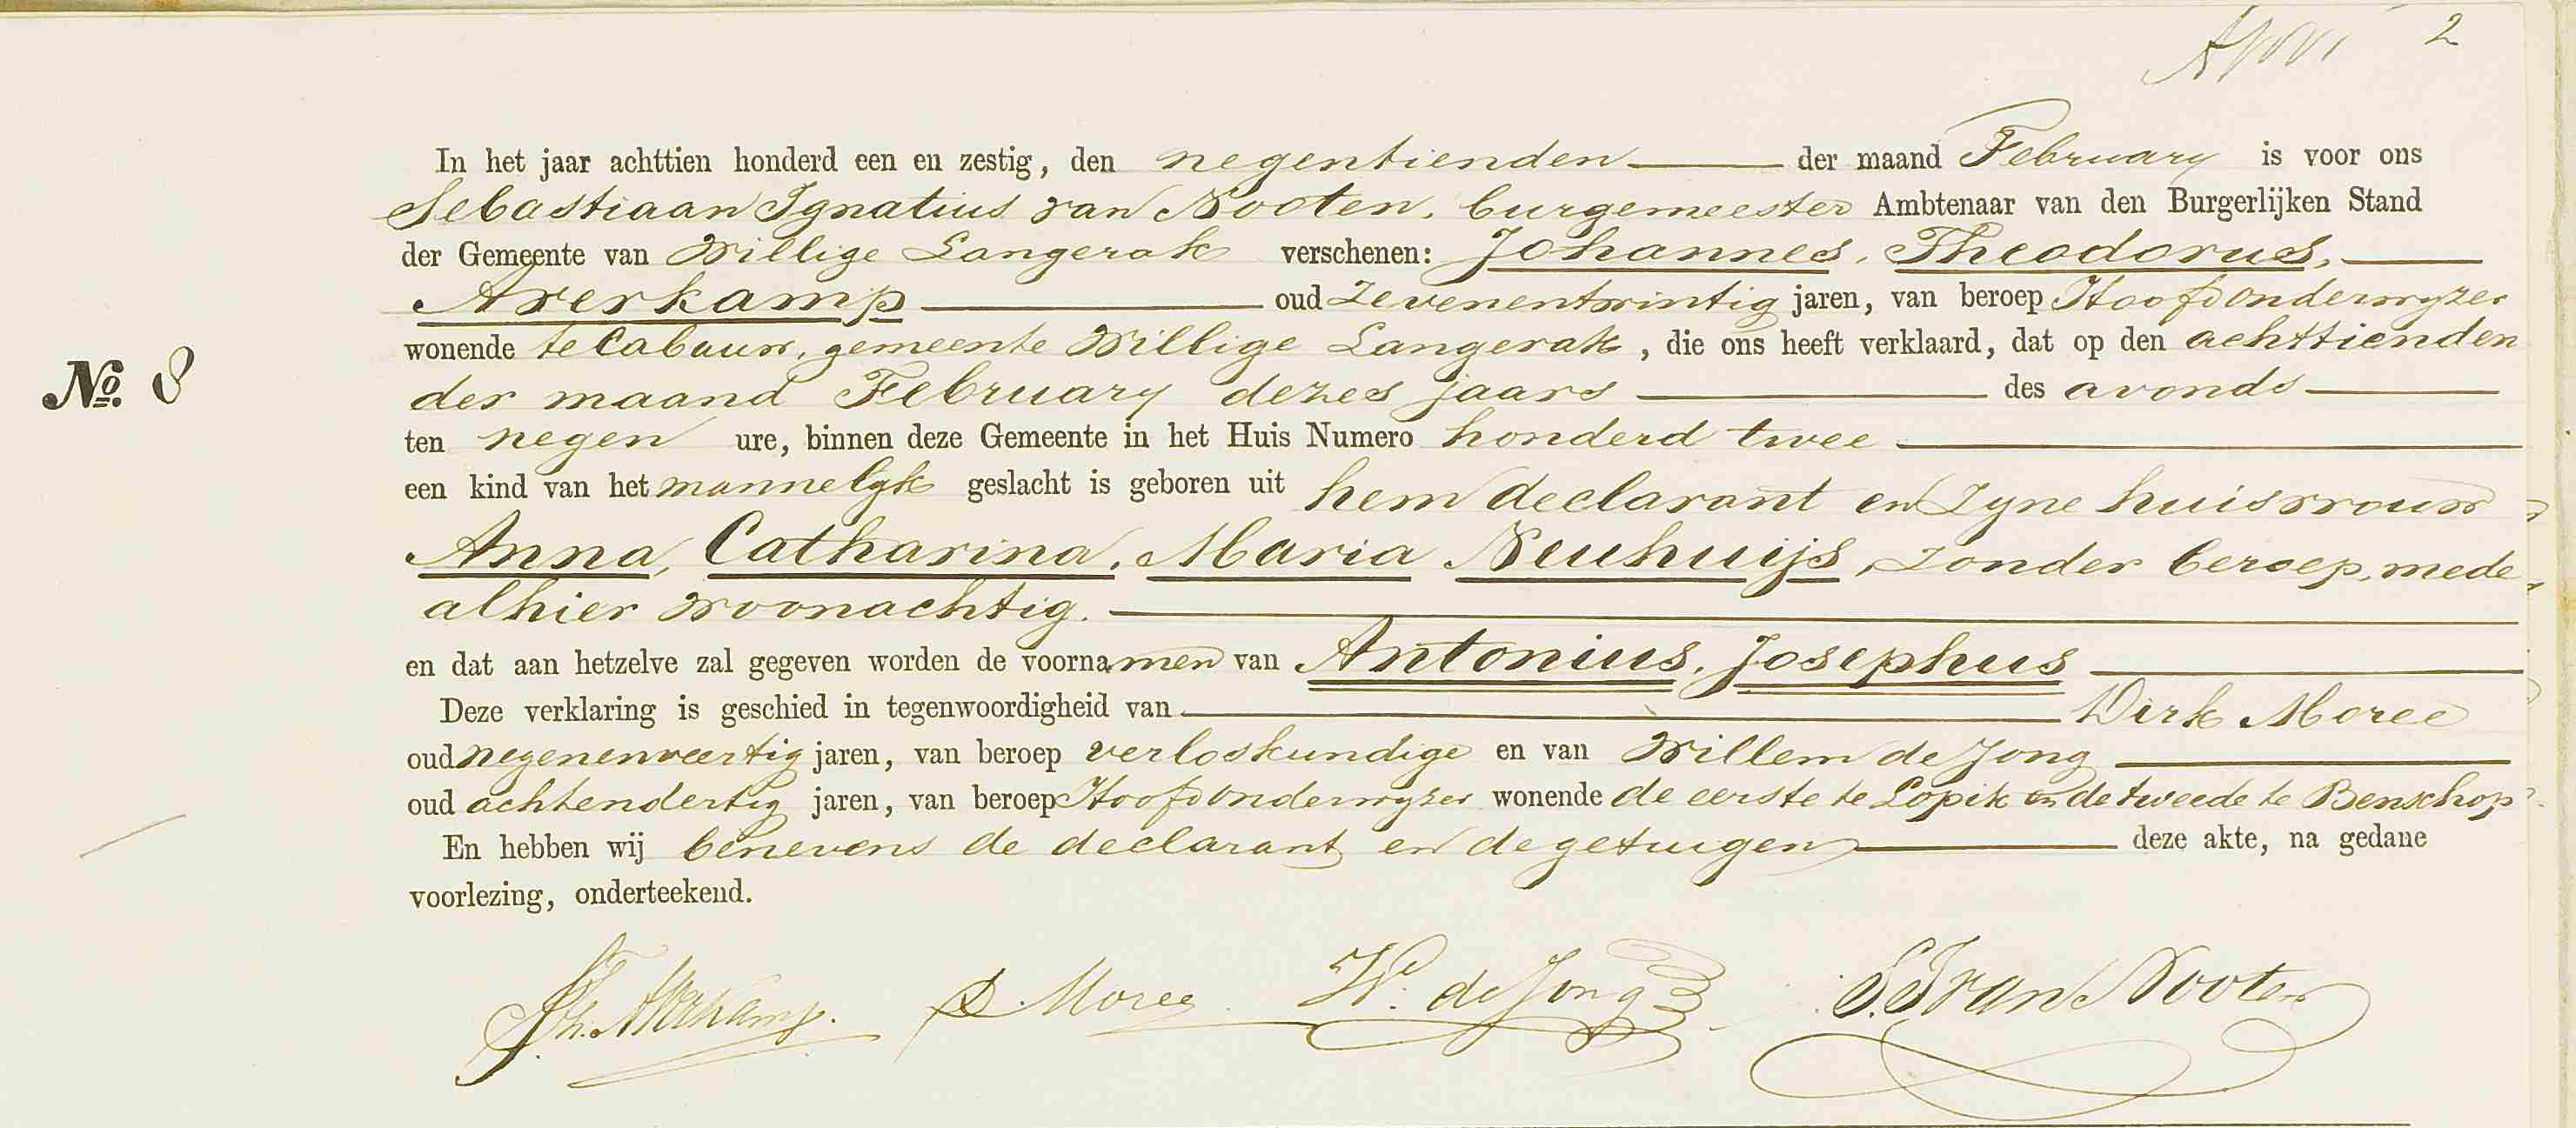 2
In het jaar achttien honderd een en zestig, den negentienden der maand February is voor ons
Sebastiaan Ignatius van Nooten, burgemeester Ambtenaar van den Burgerlijken Stand
der Gemeente van Willige Langerak verschenen: Johannes, Theodorus,
Averkamp oud zevenentwintig jaren, van beroep Hoofdonderwyzer
wonende te Cabauw, gemeente Willige Langerak, die ons heeft verklaard, dat op den achttienden
No. 8
der maand February dezes jaars des avonds
ten negen ure, binnen deze Gemeente in het Huis Numero honderd twee
een kind van het mannelyk geslacht is geboren uit hem declarant en zyne huisvrouw
Anna, Catharina, Maria Neuhuijs, zonder beroep, mede
alhier woonachtig.
en dat aan hetzelve zal gegeven worden de voornamen van Antonius, Josephus
Deze verklaring is geschied in tegenwoordigheid van Dirk Moree
oud negenenveertig jaren, van beroep verloskundige en van Willem de Jong
oud achtendertig jaren, van beroep Hoofdonderwyzer wonende de eerste te Lopik en de tweede te Benschop
En hebben wij benevens de declarant en de getuigen deze akte, na gedane
voorlezing, onderteekend.
J. Th. Averkamp. D Moree W. de Jong S. I van Nooten